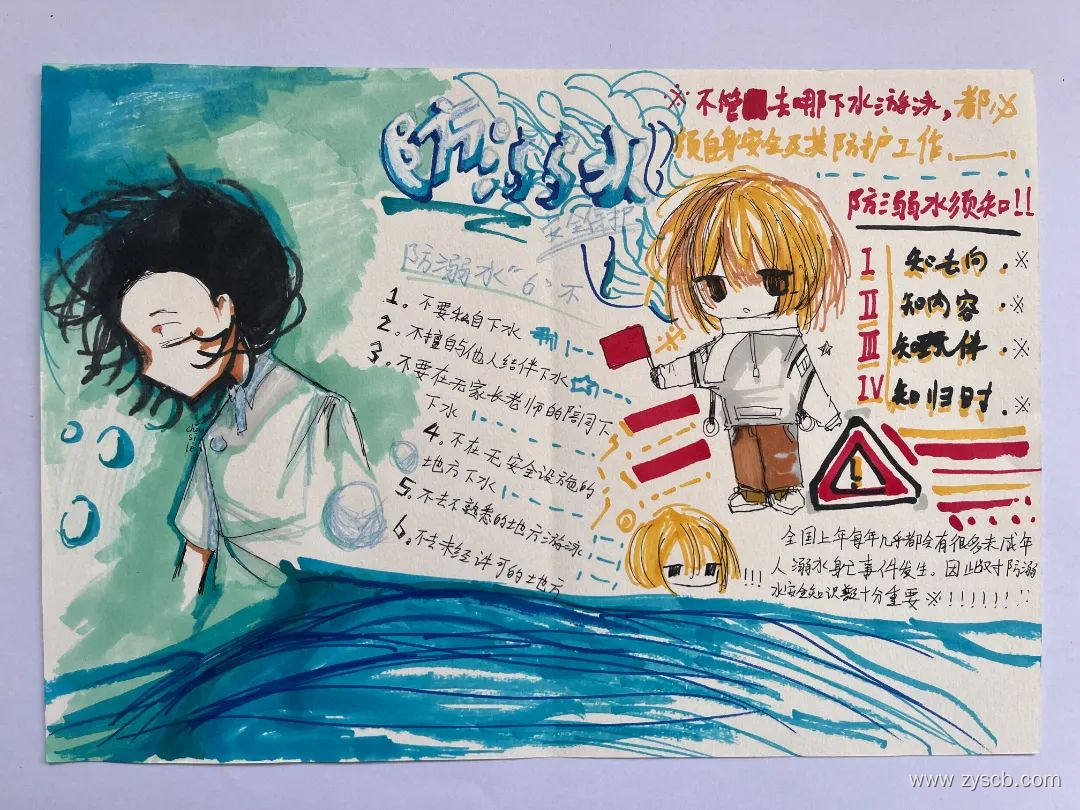 防溺水
安全保护
防溺水“6”不
1。不要私自下水
2。不擅自与他人结伴下水
3。不要在无家长老师的陪同下
下水
4。不在无安全设施的
地方下水
5。不去不熟悉的地方游泳
6。不去未经许可的地方
※不管去哪下水游泳，都必
须自身安全及其防护工作
防溺水须知!!
I 知去向。※
II 知内容。※
III 知 伴。※
IV 知归时。※
!
全国上年每年几乎都会有很多未成年
人溺水身亡事件发生。因此对于防溺
水安全知识 十分重要※!!!!!!!!
!!!
www.zyscb.com